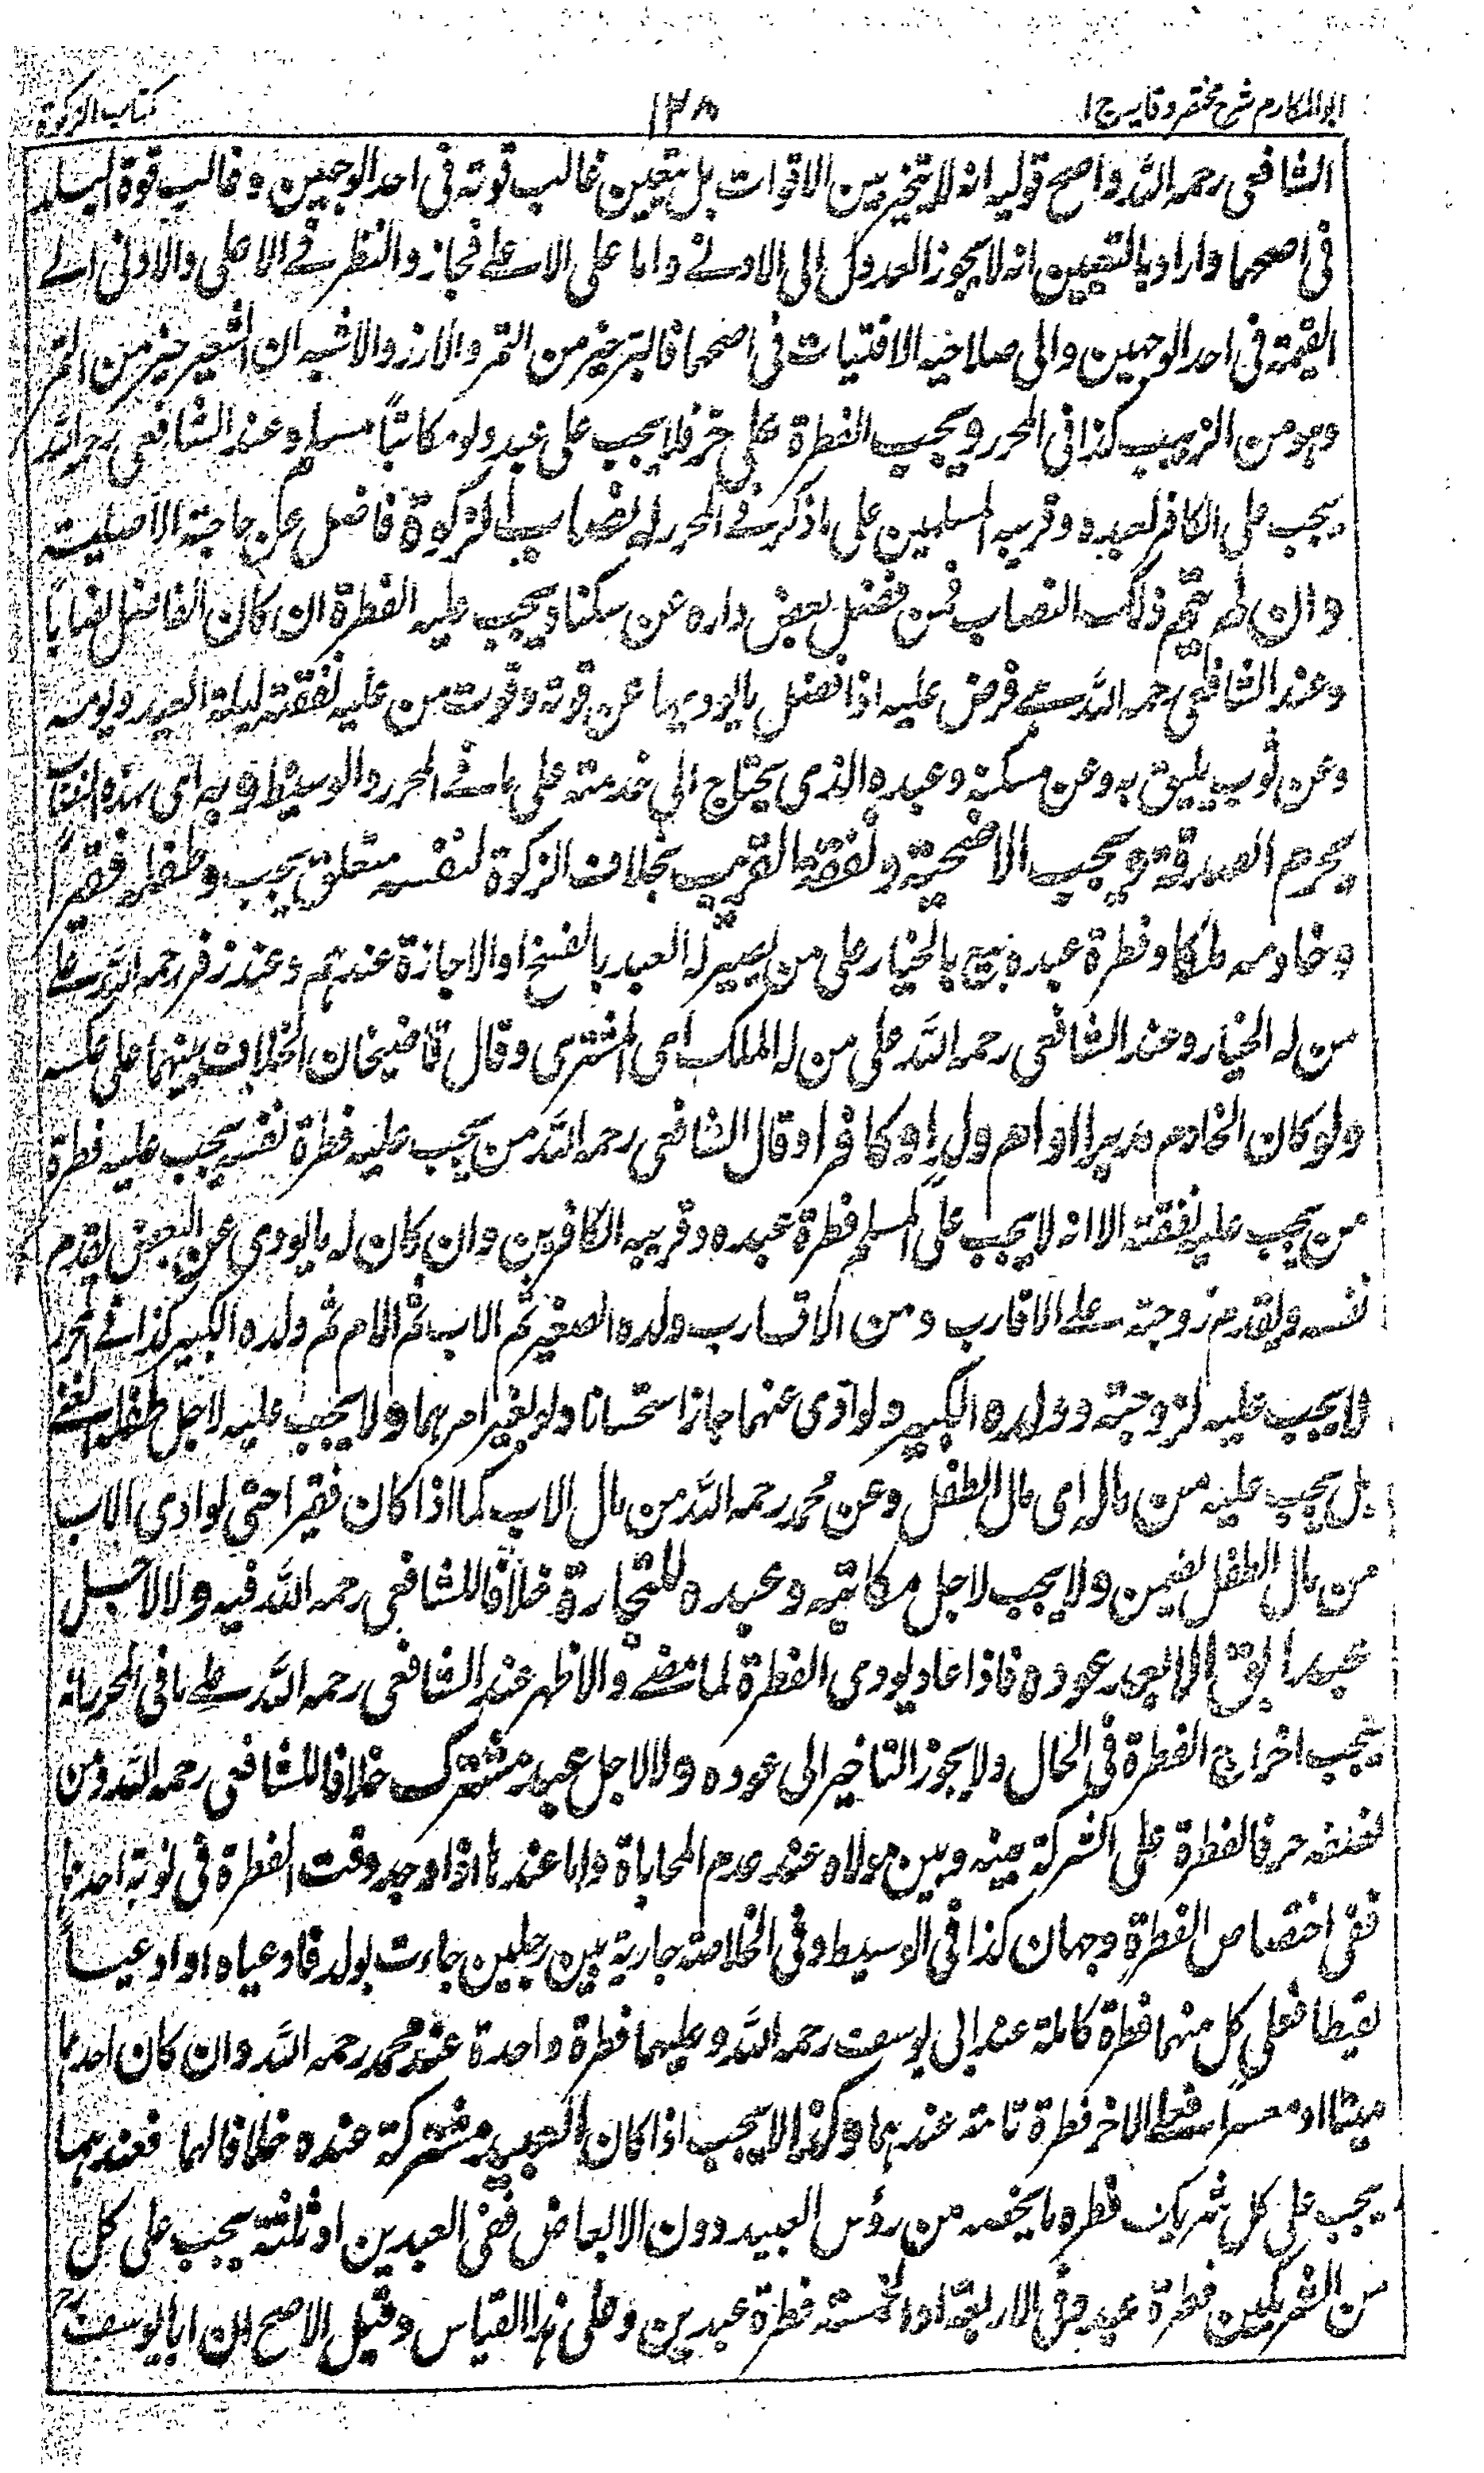 ابو المكارم شرح مختصر وقايه ج ا
١٢٨
كتاب الزكوة
الشافعى رحمه الله واصح قوليه انه لا يتخير بين الاقوات بل يتعين غالب قوته فى احد الوجهين وغالب قوة البلد
فى اصحهما واراد بالتعيين انه لا يجوز العدول الى الادنے واما على الاعلے فجاز والنظر فے الاعلى والادنى الے
القيمة فى احد الوجهين والى صلاحية الاقتيات فى اصحهما فالبر خير من التمر والارز والاشبه ان الشعير خير من التمر
وهو من الزبيب كذا فى المحرر ويجب الفطرة على حر فلا يجب على عبد ولو مكاتبا مسلم وعند الشافعى رحمه الله
يجب على الكافر لعبده وقريبه المسلمين على ما ذكر فے المحرر له نصاب الزكوة فاضل عن حاجته الاصلية
وان لم يتم ذلك النصاب فمن فضل بعض داره عن سكناه يجب عليه الفطرة ان كان الفاضل نصابا
وعند الشافعى رحمه الله تعے فرض عليه اذا فضل ما يوديها عن قوته وقوت من عليه نفقته ليلة العيد ويومه
وعن ثوب يليق به وعن مسكنه وعبده الذى يحتاج الى خدمته على ما فے المحرر والوسيط وبه اى بهذه النصاب
يحرم الصدقة ويجب الاضحية ونفقة القريب بخلاف الزكوة لنفسه متعلق بيجب وطفله فقيرا
وخادمه ملكا وفطرة عبده بيع بالخيار على من يصير له العبد بالفسخ او الاجازة عندهم وعند زفر رحمه الله علے
من له الخيار وعند الشافعى رحمه الله على من له الملك اى المشترى وقال قاضيخان الخلاف بينهما على عكسه
ولو كان الخادم مدبرا او ام ولد او كافرا وقال الشافعى رحمه الله من يجب عليه فطرة نفسه يجب عليه فطرة
من يجب عليه نفقته الا انه لا يجب على المسلم فطرة عبده وقريبه الكافرين وان كان له ما يودى عن البعض يقدم
نفسه ويقدم زوجته علے الاقارب ومن الاقارب ولده الصغير ثم الاب ثم الام ثم ولده الكبير كذا فے المحرر
لا يجب عليه لزوجته وولده الكبير ولو ادى عنهما جاز استحسانا ولو بغير امرهما ولا يجب عليه لاجل طفله الغنے
بل يجب عليه من ماله اى مال الطفل وعن محمد رحمه الله من مال الاب كما اذا كان فقيرا حتى لو ادى الاب
من مال الطفل يضمن ولا يجب لاجل مكاتبه وعبده للتجارة خلافا للشافعى رحمه الله فيه ولا لاجل
عبد ابق الا بعد عوده فاذا عاد يودى الفطرة لما مضے والاظهر عند الشافعى رحمه الله علے ما فى المحرر انه
يجب اخراج الفطرة فى الحال ولا يجوز التاخير الى عوده ولا لاجل عبد مشترك خلافا للشافعى رحمه الله ومن
نصفه حر فالفطرة على الشركة بينه وبين مولاه عند عدم المحاباة واما عندنا اذا وجد وقت الفطرة فى نوبة احدهما
ففى اختصاص الفطرة وجهان كذا فى الوسيط وفى الخلاصة جارية بين رجلين جاءت بولد فادعياه او ادعيا
لقيطا فعلى كل منهما فطرة كاملة عند ابى يوسف رحمه الله وعليهما فطرة واحدة عند محمد رحمه الله وان كان احدهما
ميتا او معسرا فعلے الاخر فطرة تامة عندهما وكذا لا يجب اذا كان العبيد مشتركة عنده خلافا لهما فعندهما
يجب على كل شريك فطرة ما يخصه من رؤس العبيد دون الابعاض ففى العبدين او ثلثة يجب على كل
من الشريكين فطرة عبد وفى الاربعة او الخمسة فطرة عبدين وعلى هذا القياس وقيل الاصح ان ابا يوسف رح